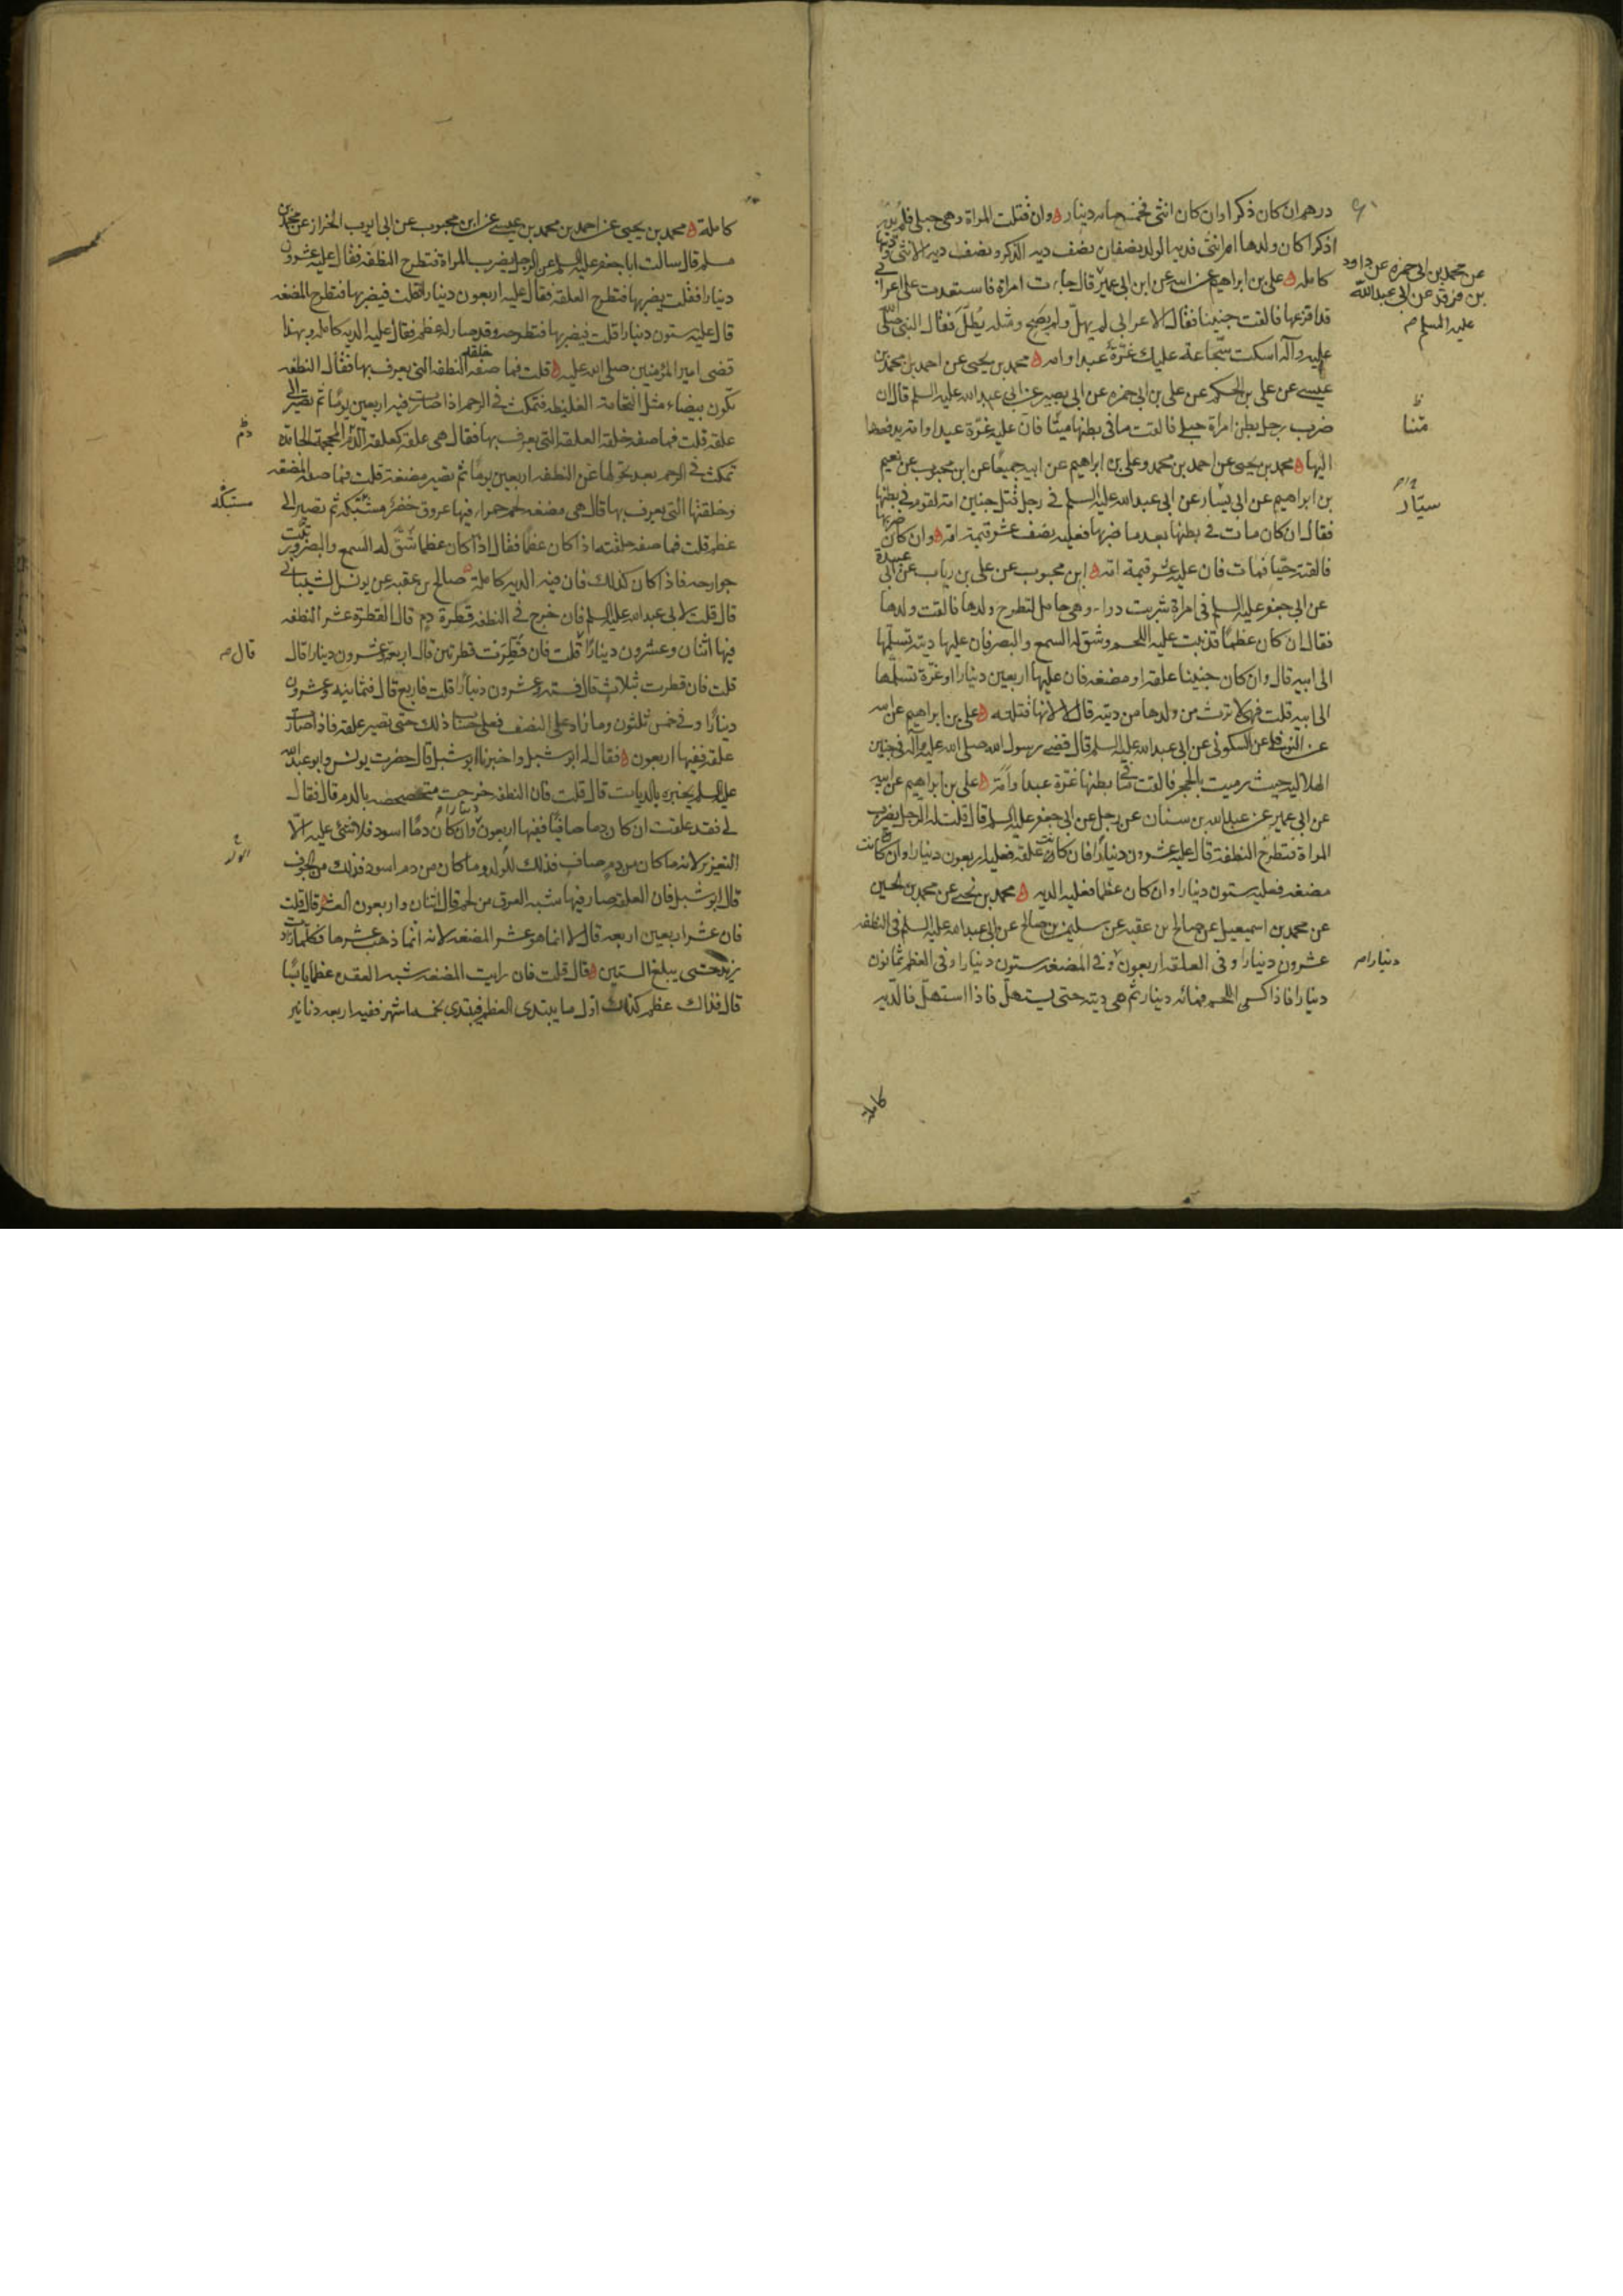 درهم ان كان ذكرا وان كان انثى فخمسمائه دينار وان قتلت المراة وهى حبلى فلم يدر
اذكرا كان ولدها ام انثى فديه الولد بنصفين نصف ديه الذكر ونصف ديه الانثى وديتها
كامله على بن ابراهيم عن ابيه عن ابن ابى عمير قال جاءت امراة فاستعدت على اعرابى
عن محمد بن ابى حمزه عن داود
بن فرقد عن ابى عبدالله
عليه السلم
قد افزعها فالقت جنينا فقال الاعرابى لم يهلّ ولم يصح ومثله يُطلّ فقال النبى صلّى
عليه وآله اسكت سجّاعة عليك غرّة عبد او امه محمد بن يحيى عن احمد بن محمد بن
عيسى عن على بن الحكم عن على بن ابى حمزه عن ابى بصير عن ابى عبدالله عليه السلم قال ان
ضرب رجل بطن امرأة حبلى فالقت ما فى بطنها ميتًا فان عليه غرّة عبد او امة يدفعها
اليها محمد بن يحيى عن احمد بن محمد وعلى بن ابراهيم عن ابيه جميعًا عن ابن محبوب عن نعيم
بن ابراهيم عن ابى يسار عن ابى عبدالله عليه السلم فى رجل قتل جنين امة لقوم فى بطنها
سيّار
فقال ان كان مات فى بطنها بعد ما ضربها فعليه نصف عشر قيمة امه وان كان ضربها
فالقته حيّا فمات فان عليه عشر قيمة امه ابن محبوب عن على بن رياب عن ابى عبيدة
عن ابى جعفر عليه السلم فى امراة شربت دواء وهى حامل لتطرح ولدها فالقت ولدها
فقال ان كان عظمًا قد نبت عليه اللحم وشق له السمع والبصر فان عليها ديته تسلّمها
الى ابيه قال وان كان جنينا علقه او مضغه فان عليها اربعين دينارا او غرّة تسلّمها
الى ابيه قلت فهى لا ترث من ولدها من ديته قال لا لانها قتلته على بن ابراهيم عن ابيه
عن النوفلى عن السكونى عن ابى عبدالله عليه السلم قال قضى رسول الله صلى الله عليه وآله فى جنين
الهلاليه حيث رميت بالحجر فالقت ما فى بطنها غرّة عبد او أمة على بن ابراهيم عن ابيه
عن ابى عمير عن عبدالله بن سنان عن رجل عن ابى جعفر عليه السلم قال قلت له الرجل يضرب
المراة فتطرح النطفة قال عليه عشرون دينارًا فان كانت علقه فعليه اربعون دينارا وان كانت
مضغه فعليه ستون دينارا وان كان عظما فعليه الديه محمد بن يحيى عن محمد بن الحسين
عن محمد بن اسمعيل عن صالح بن عقبه عن سليمن بن صالح عن ابى عبدالله عليه السلم فى النطفه
عشرون دينارا وفى العلقه اربعون وفى المضغه ستون دينارا وفى العظم ثمانون
دينارا
دينارا فاذا كسى اللحم فمائه دينار ثم هى ديته حتى يستهلّ فاذا استهلّ فالديه
كاملة
كاملة محمد بن يحيى عن احمد بن محمد بن عيسى عن ابن محبوب عن ابى ايوب الخراز عن محمد بن
مسلم قال سالت ابا جعفر عليه السلم عن الرجل يضرب المراة فتطرح النطفه فقال عليه عشرون
دينارا فقلت يضربها فتطرح العلقة فقال عليه اربعون دينارا قلت فيضربها فتطرح المضغه
قال عليه ستون دينارا قلت فيضربها فتطرحه وقد صار له عظم فقال عليه الديه كامله وبهذا
قضى امير المؤمنين صلى الله عليه قلت فما صفه خلقه النطفه التى يعرف بها فقال النطفه
تكون بيضاء مثل النخامة الغليظه فتمكث فى الرحم اذا صارت فيه اربعين يومًا ثم تصير الى
علقه قلت فما صفه خلقه العلقه التى يعرف بها فقال هى علقه كعلقه الدم المحجمة الجامدة
تمكث فى الرحم بعد تحولها عن النطفه اربعين يومًا ثم تصير مضغة قلت فما صفه المضغه
وخلقتها التى يعرف بها قال هى مضغه لحم حمراء فيها عروق خضر مشتبكه ثم تصير الى
عظم قلت فما صفه خلقته اذا كان عظمًا فقال اذا كان عظما شُقّ له السمع والبصر ورتبت
جوارحه فاذا كان كذلك فان فيه الديه كاملة صالح بن عقبه عن يونس الشيبانى
قال قلت لابى عبدالله عليه السلم فان خرج فى النطفه قطرة دم قال القطرة عشر النطفه
فيها اثنان وعشرون دينارًا قلت فان قطرت قطرتين قال اربعة وعشرون دينارا قال
قال
قلت فان قطرت بثلاث قال فستة وعشرون دينارًا قلت فاربع قال فثمانيه وعشرون
دينارًا وفى خمس ثلثون وما زاد على النصف فعلى حساب ذلك حتى تصير علقه فاذا صارت
علقه ففيها اربعون فقال له ابو شبل واخبرنا ابو شبل قال حضرت يونس وابو عبدالله
عليه السلم يخبره بالديات قال قلت فان النطفه خرجت متخضخضه بالدم قال فقال
لى فقد علقت ان كان دما صافيًا ففيها اربعون دينارا وان كان دمًا اسود فلا شئ عليه الّا
التعزير لانه ما كان من دم صاف فذلك للولد وما كان من دم اسود فذلك من الجوف
قال ابو شبل فان العلقه صار فيها شبه العرق من لحم قال اثنان واربعون العشر قال قلت
فان عشر اربعين اربعه قال لا انما هو عشر المضغه لانه انما ذهب عشرها فكلما زادت
زيد حتى يبلغ الستين قال قلت فان رايت المضغه شبه العقده عظمًا يابسًا
قال فذاك عظم كذلك اول ما يبتدى العظم فيبتدى بخمسة اشهر ففيه اربعه دنانير